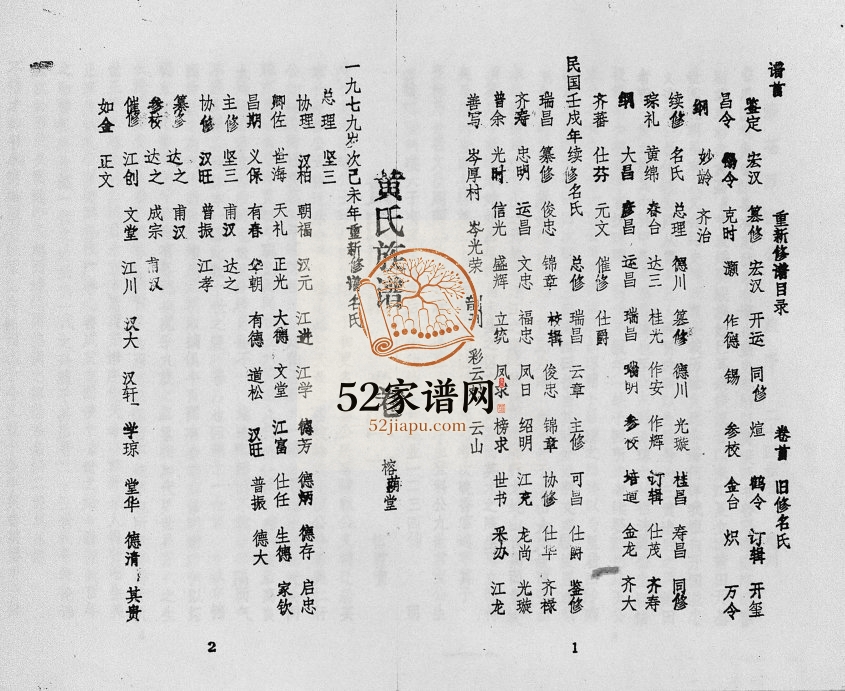 谱首 重新修谱目录 卷首 旧修名氏
鉴定 宏汉 纂修 宏汉 开运 同修 煊 鹤令 订辑 开玺
昌令 锡令 克时 灏 作德 锡 参校 金台 炽 万令
纲 妙龄 齐治
续修 名氏 总理 德川 纂修 德川 光璇 桂昌 寿昌 同修
琮礼 黄绵 春台 达三 桂光 作安 作辉 订辑 仕茂 齐寿
纲 大昌 彦昌 运昌 瑞昌 瑞明 参校 培道 金龙 齐大
齐蕃 仕芬 元文 催修 仕爵
民国壬戌年续修名氏 总修 瑞昌 云章 主修 可昌 仕爵 鉴修
瑞昌 纂修 俊忠 锦章 校辑 俊忠 锦章 协修 仕华 齐禄
齐寿 忠明 运昌 文忠 福忠 凤日 绍明 江克 龙尚 光璇
曾余 光时 信光 盛辉 立统 凤求 榜求 世书 采办 江龙
善写 岑厚村 岑光荣 彩云 云山
1
黄氏族谱 卷 榕荫堂
一九七九岁次己未年重新修谱名氏
总理 坚三
协理 汉柏 朝福 汉元 江进 江学 德芳 德炳 德存 启忠
卿佐 世海 天礼 正光 大德 文堂 江富 仕任 生德 家钦
昌期 义保 有春 华朝 有德 道松 汉旺 普振 德大
主修 坚三 甫汉 达之
协修 汉旺 普振 江孝
纂修 达之 甫汉
参校 达之 成宗 甫汉
催修 江创 文堂 江川 汉大 汉轩 学琼 堂华 德清 其贵
如金 正文
2
52家谱网
52jiapu.com